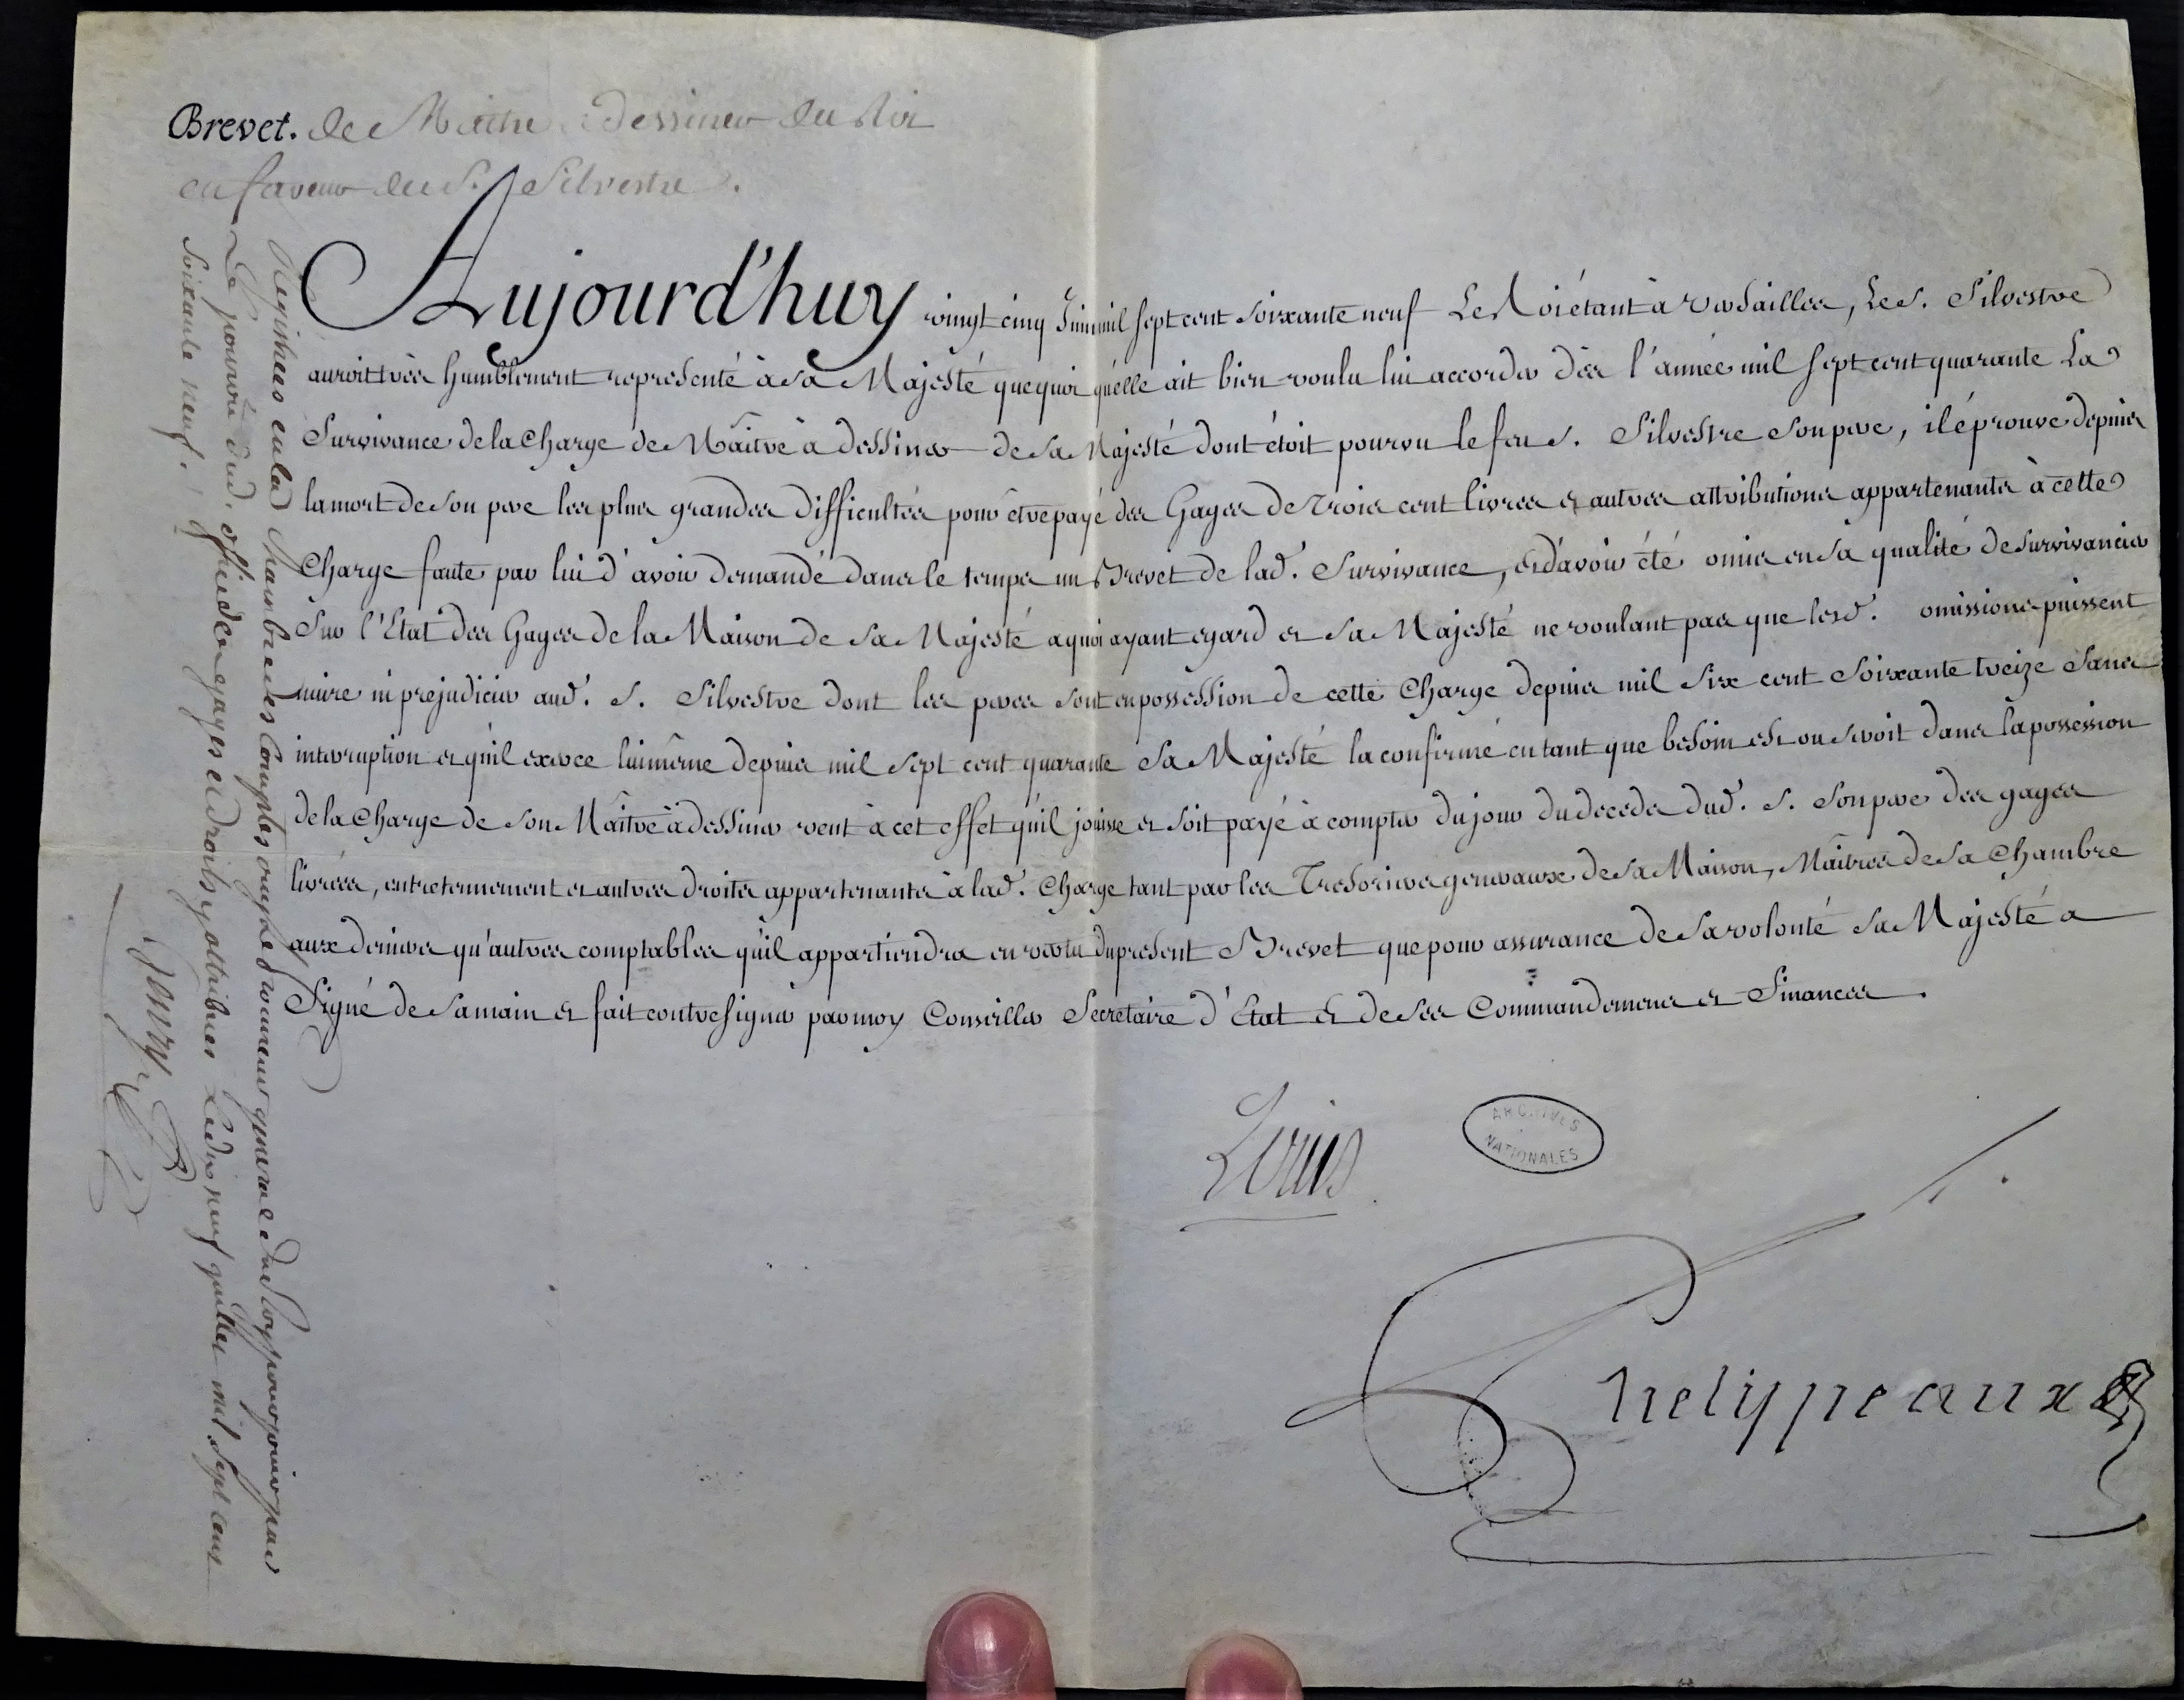 Brevet. de Maitre a Dessiner du Roi
en faveur du S. Silvestre.
Aujourd'huy vingt cinq Juin mil sept cent soixante neuf Le Roi étant à Versailles, Le S. Silvestre
auroit très humblement representé à Sa Majesté que quoi qu'elle ait bien voulu lui accorder dès l'année mil sept cent quarante La
Survivance de la Charge de Maître à dessiner de Sa Majesté dont étoit pourvu le feu S. Silvestre son pere, il éprouve depuis
la mort de son pere les plus grandes difficultés pour être payé des Gages de trois cent livres et autres attributions appartenants à cette
Charge faute par lui d'avoir demandé dans le temps un Brevet de lad. Survivance, et d'avoir été omis en sa qualité de survivancier
Sur l'Etat des Gages de la Maison de Sa Majesté a quoi ayant egard et Sa Majesté ne voulant pas que lesd. omissions puissent
nuire ni prejudicier aud. S. Silvestre dont les peres sont en possession de cette Charge depuis mil six cent soixante treize sans
interruption et qu'il exerce lui même depuis mil sept cent quarante Sa Majesté la confirmé en tant que besoin est ou seroit dans la possession
de la Charge de son Maître à dessiner veut à cet effet qu'il jouisse et soit payé à compter du jour du decede dud. S. son pere des gages
livrées, entretennement et autres droits appartenants à lad. Charge tant par les Tresoriers generaux de sa Maison, Maîtres de sa Chambre
aux deniers qu'autres comptables qu'il appartiendra en vertu du present Brevet que pour assurance de sa volonté Sa Majesté a
Signé de sa main et fait contresigner par moy Conseiller Secretaire d'Etat et de ses Commandemens et Finances.
Louis
ARCHIVES
NATIONALES
Phelypeaux
Registrées en la Chambre des Comptes ouy le Procureur general du Roy pour jouir par
Le pourvû dud. office des gages et droits y attribues Le dix neuf juillet mil sept cent
soixante neuf.